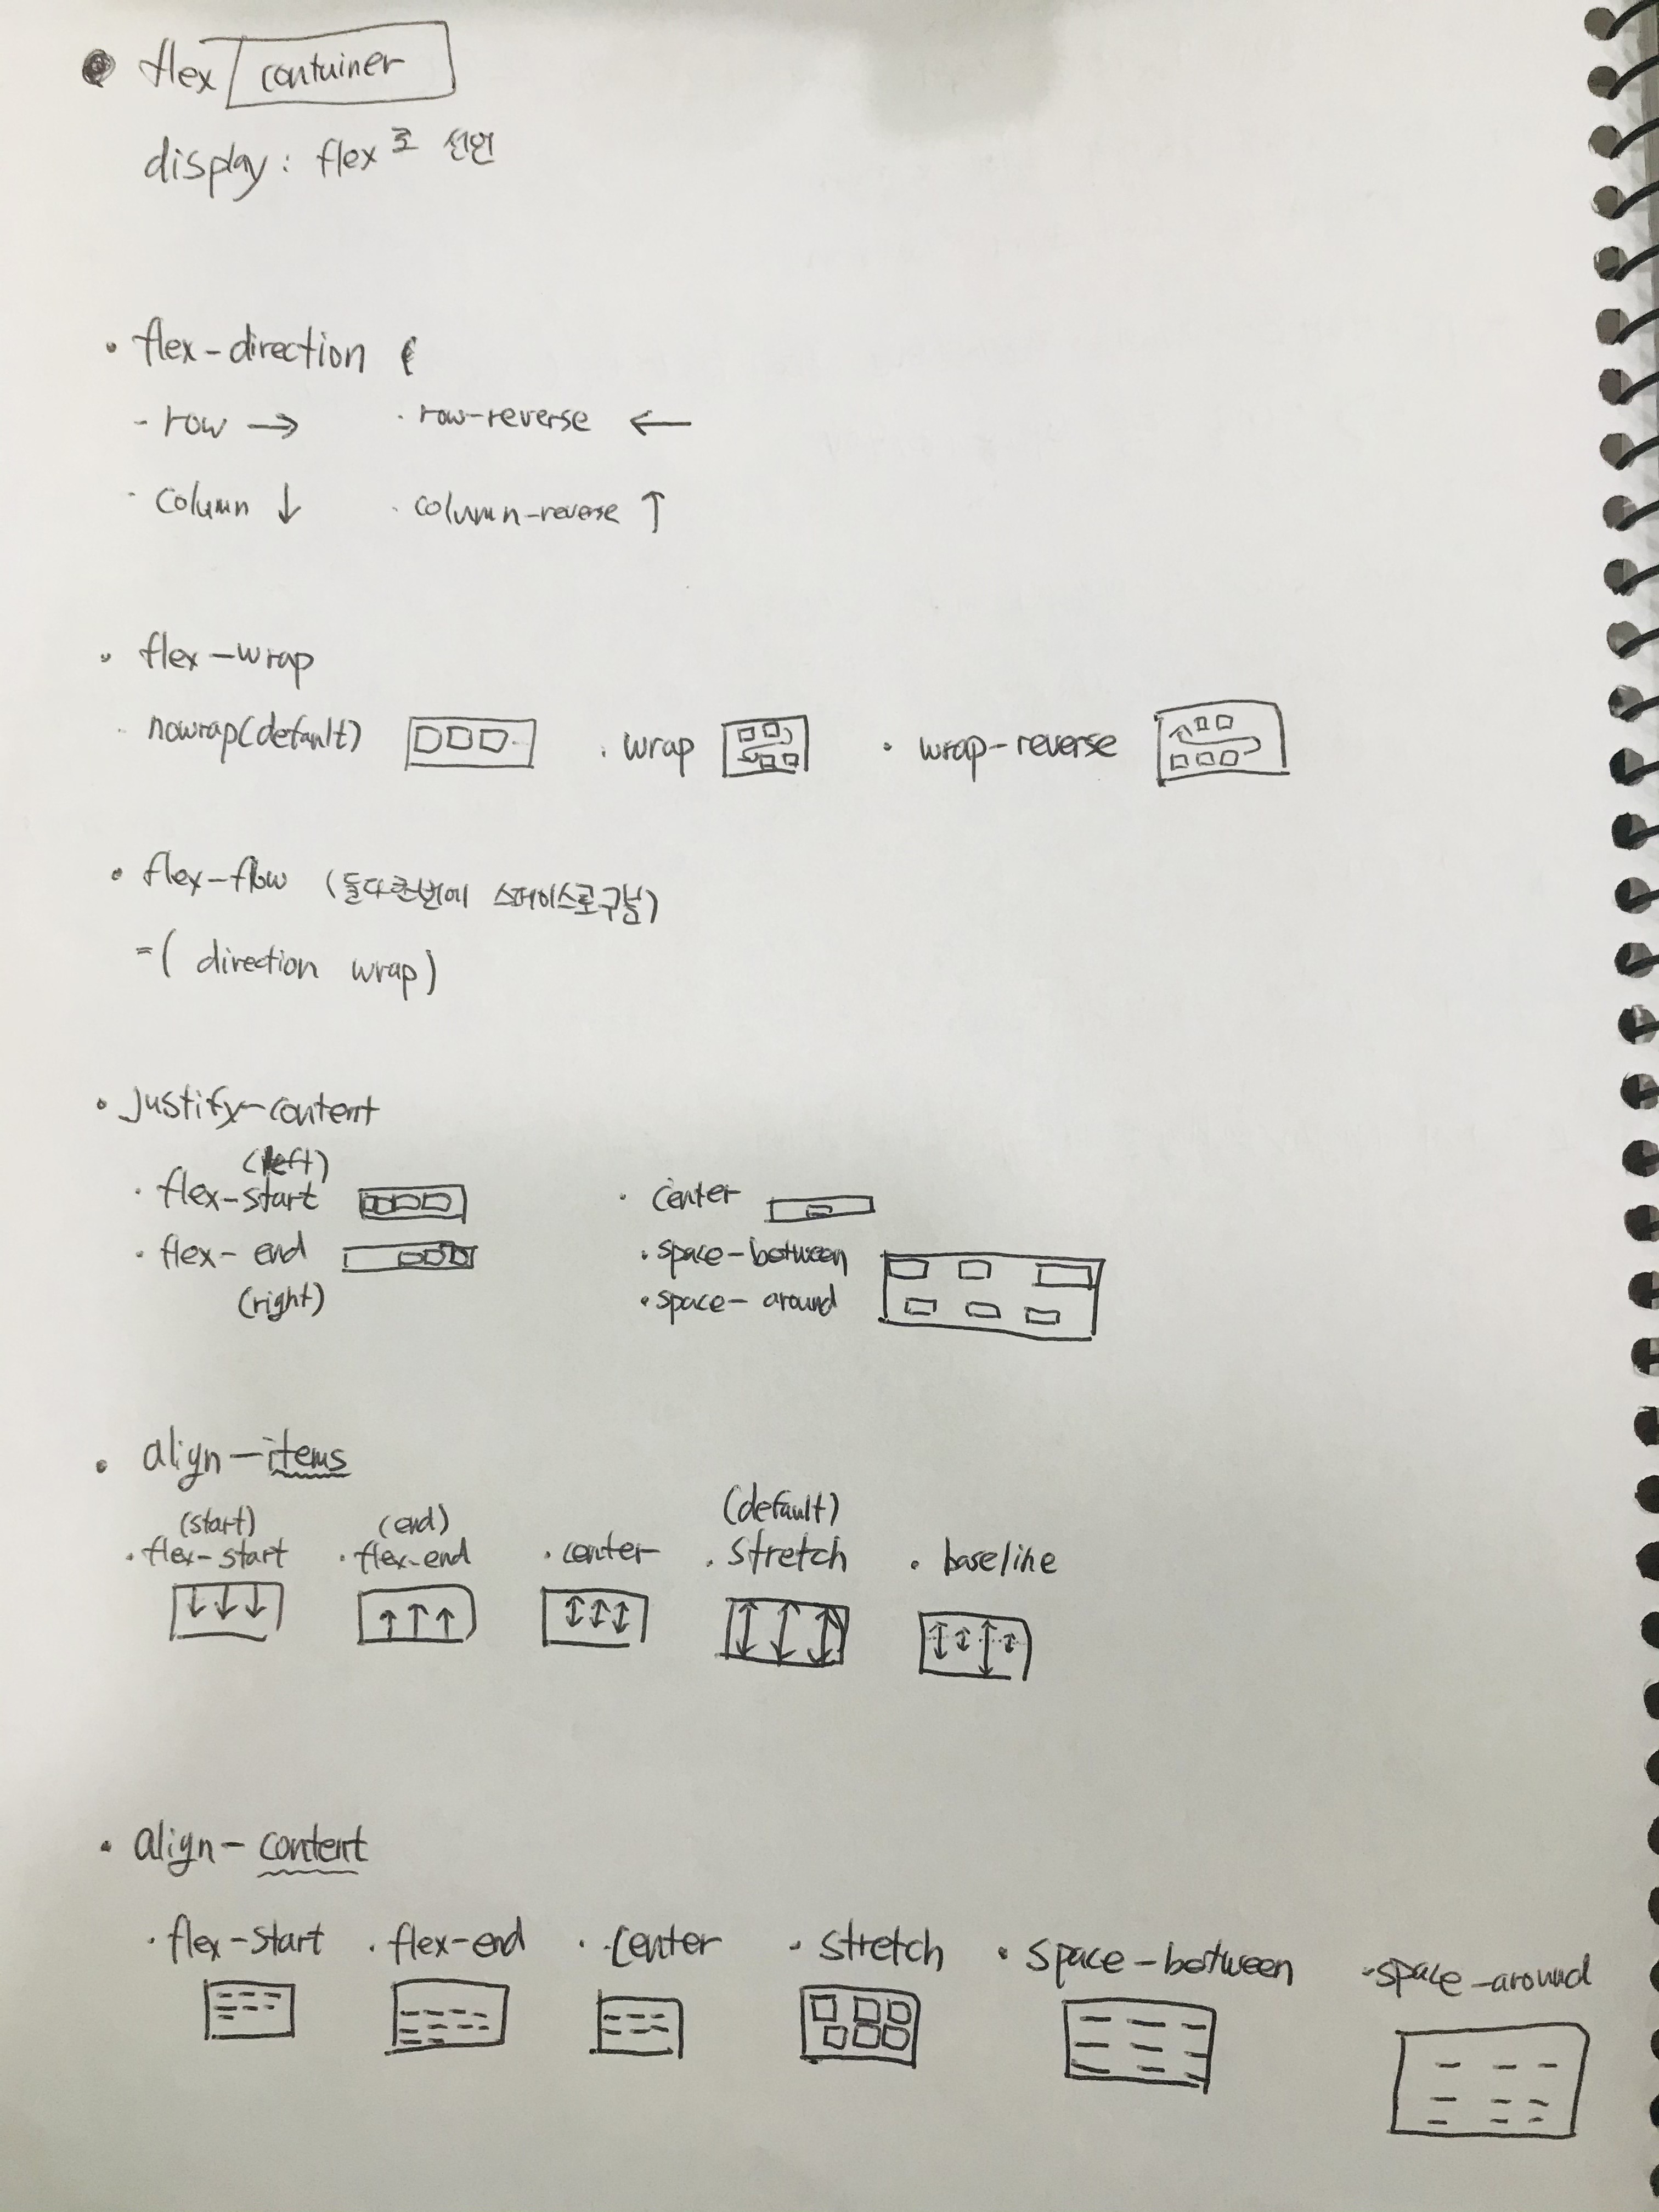 flex container
display: flex로 선언
• flex-direction
- row → · row-reverse ←
· column ↓ · column-reverse ↑
• flex-wrap
· nowrap(default) · wrap · wrap-reverse
• flex-flow (둘다 한번에 스페이스로 구분)
= ( direction wrap)
• justify-content
(left)
· flex-start · center
· flex-end · space-between
(right) · space-around
• align-items
(start) (end) (default)
· flex-start · flex-end · center · stretch · baseline
• align-content
· flex-start · flex-end · center · stretch · space-between · space-around